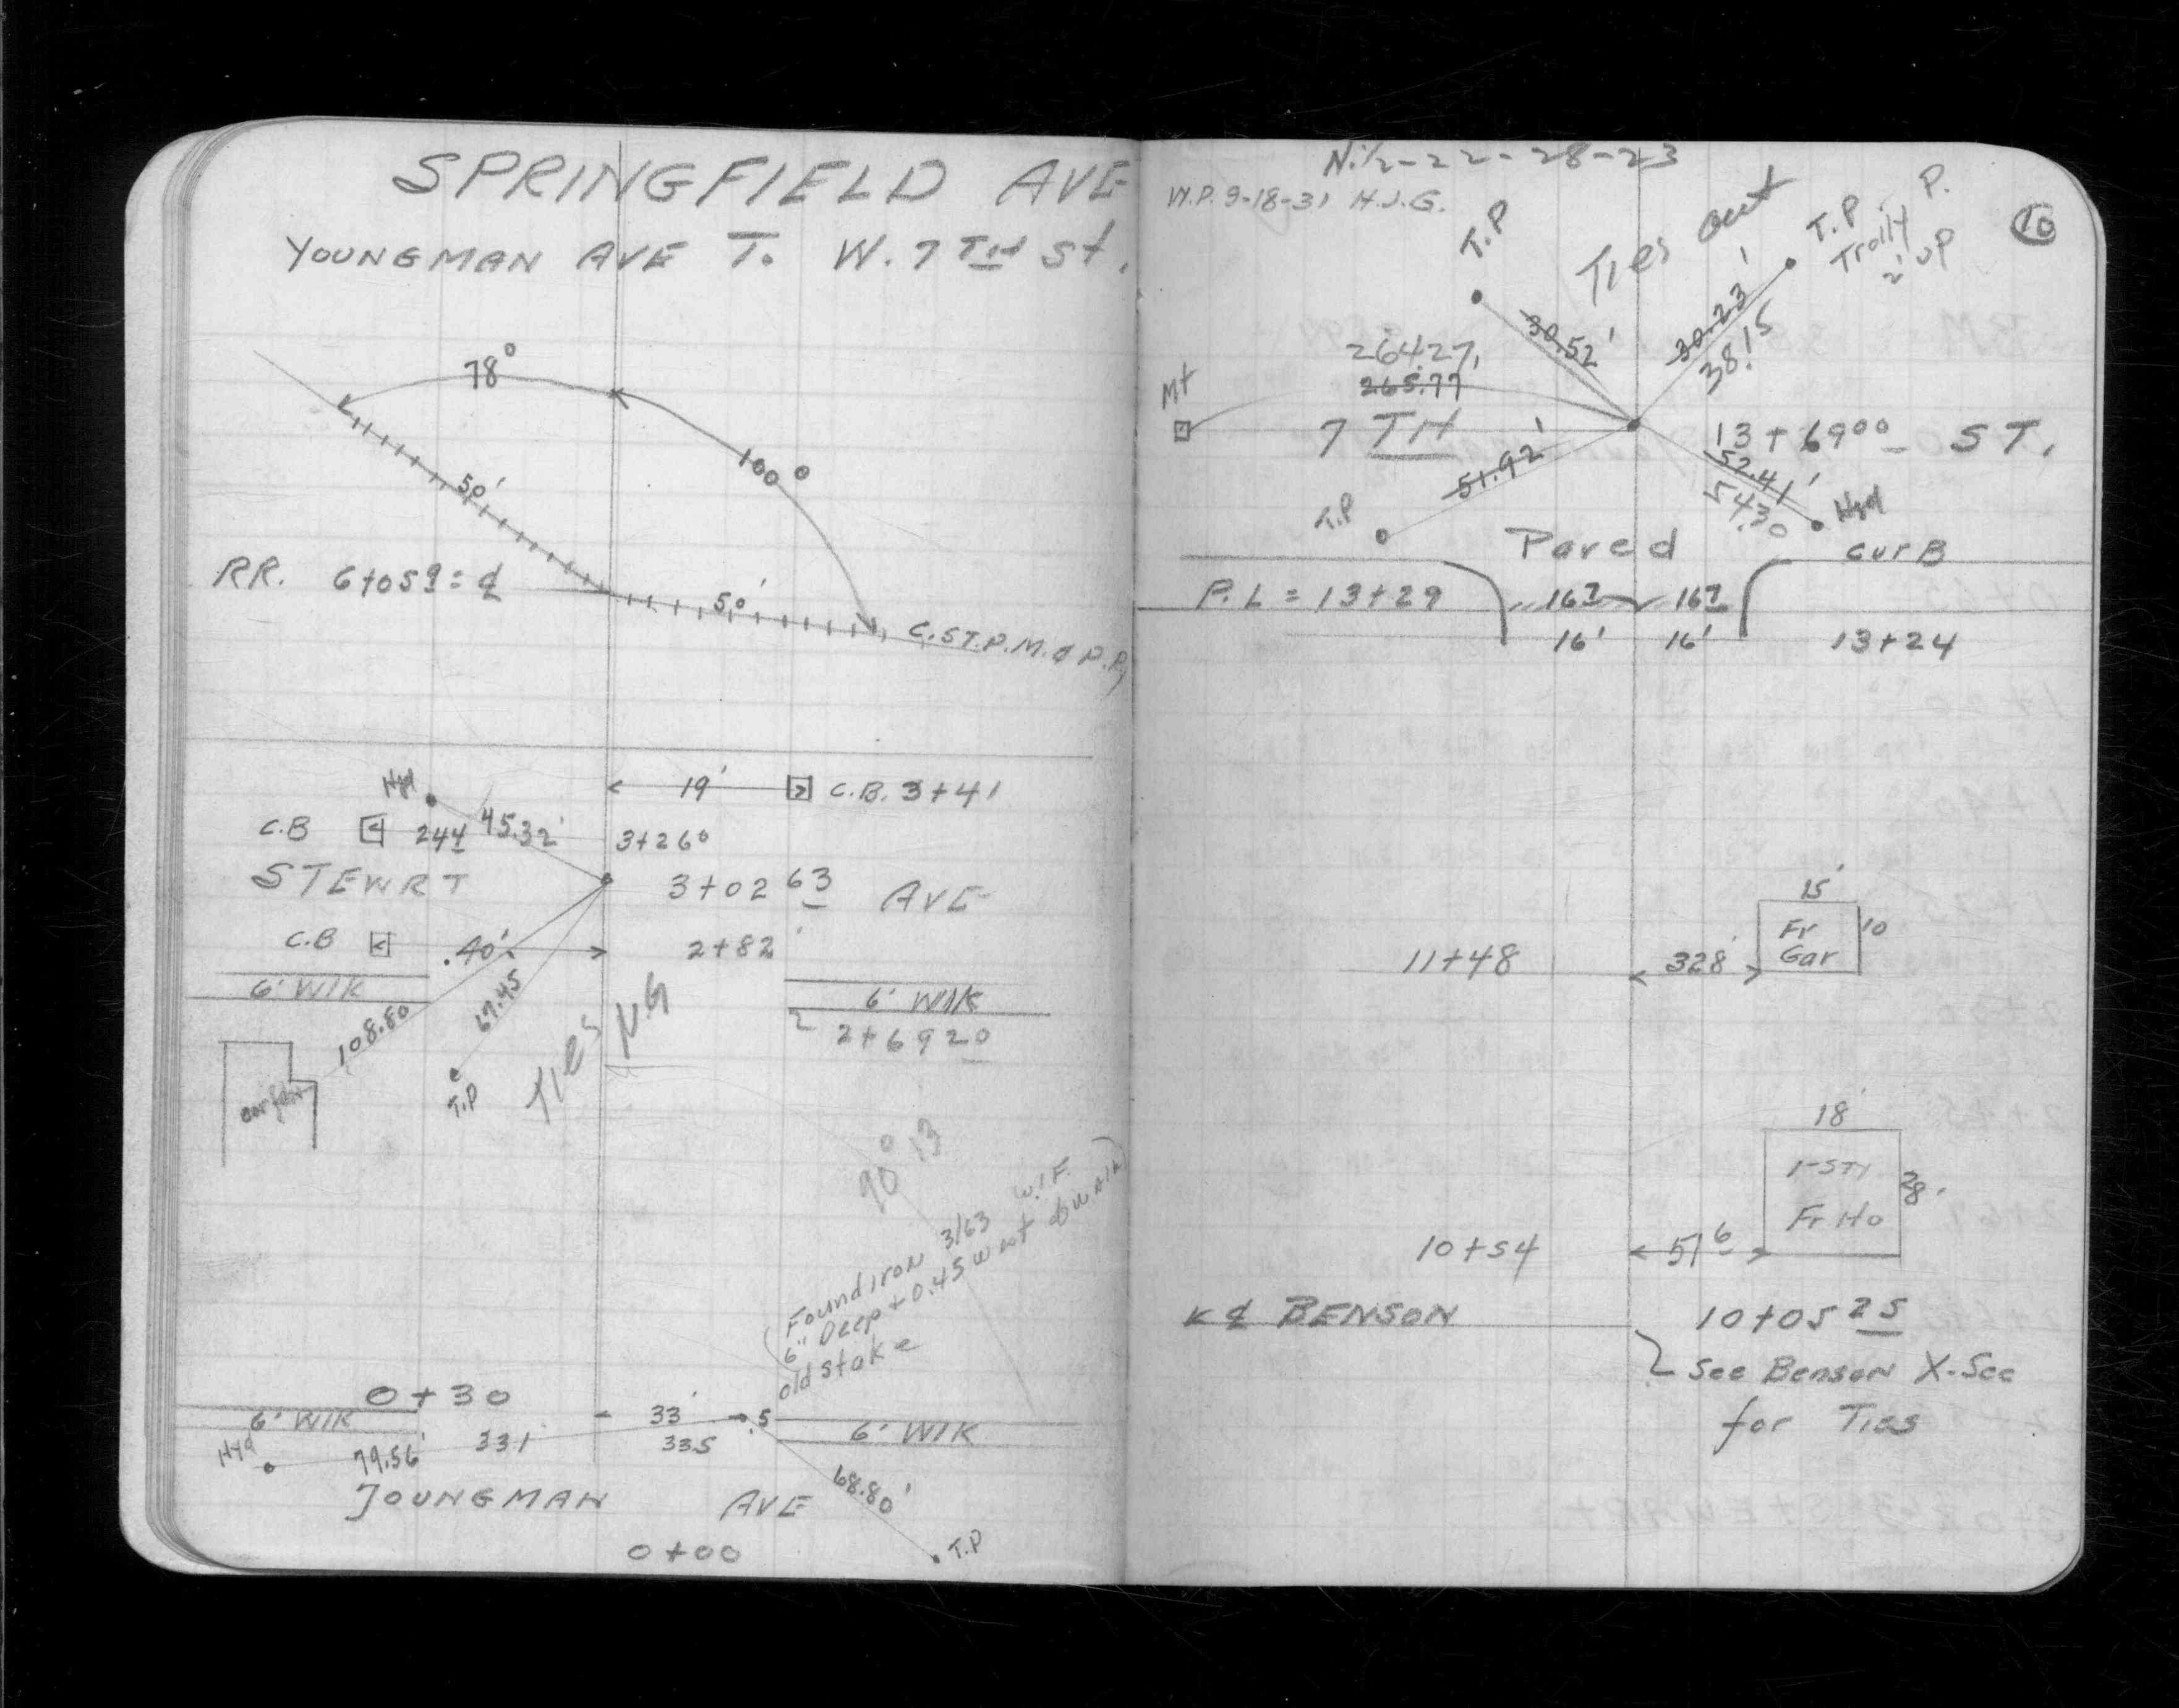 SPRINGFIELD AVE
YOUNGMAN AVE T. W. 7TH St.
78°
100°
50'
RR. 6+059 = ℄
50'
C.ST.P.M.&
Hyd
19'
C.B. 3+41
C.B
244
45.32'
3+26°
STEWRT
3+02 63
AVE
C.B
40'
2+82
6' WlK
6' WlK
108.80
67.45
Ties N.G
2+6920
T.P
90° 13
Found iron 3/63 W.I.F.
6" Deep + 0.45 west
old stake
0+30
6' WlK
33'
5
6' WlK
Hyd
79.56'
331
335
68.80'
YOUNGMAN AVE
T.P
0+00
N.½-22-28-23
W.P. 9-18-31 H.J.G.
10
T.P
Ties out
T.P. P.
Trolly
2' up
30.52'
30.23'
38.15
264.27
265.77
Mt
7TH
13+69°° ST.
51.92'
52.41'
54.30
T.P
Hyd
Paved
curB
P.L = 13+29
167
167
16'
16'
13+24
15'
Fr
Gar
10
11+48
328'
18'
1-STY
Fr Ho
28'
10+54
516
℄ BENSON
10+05 25
See Benson X-Sec
for Ties